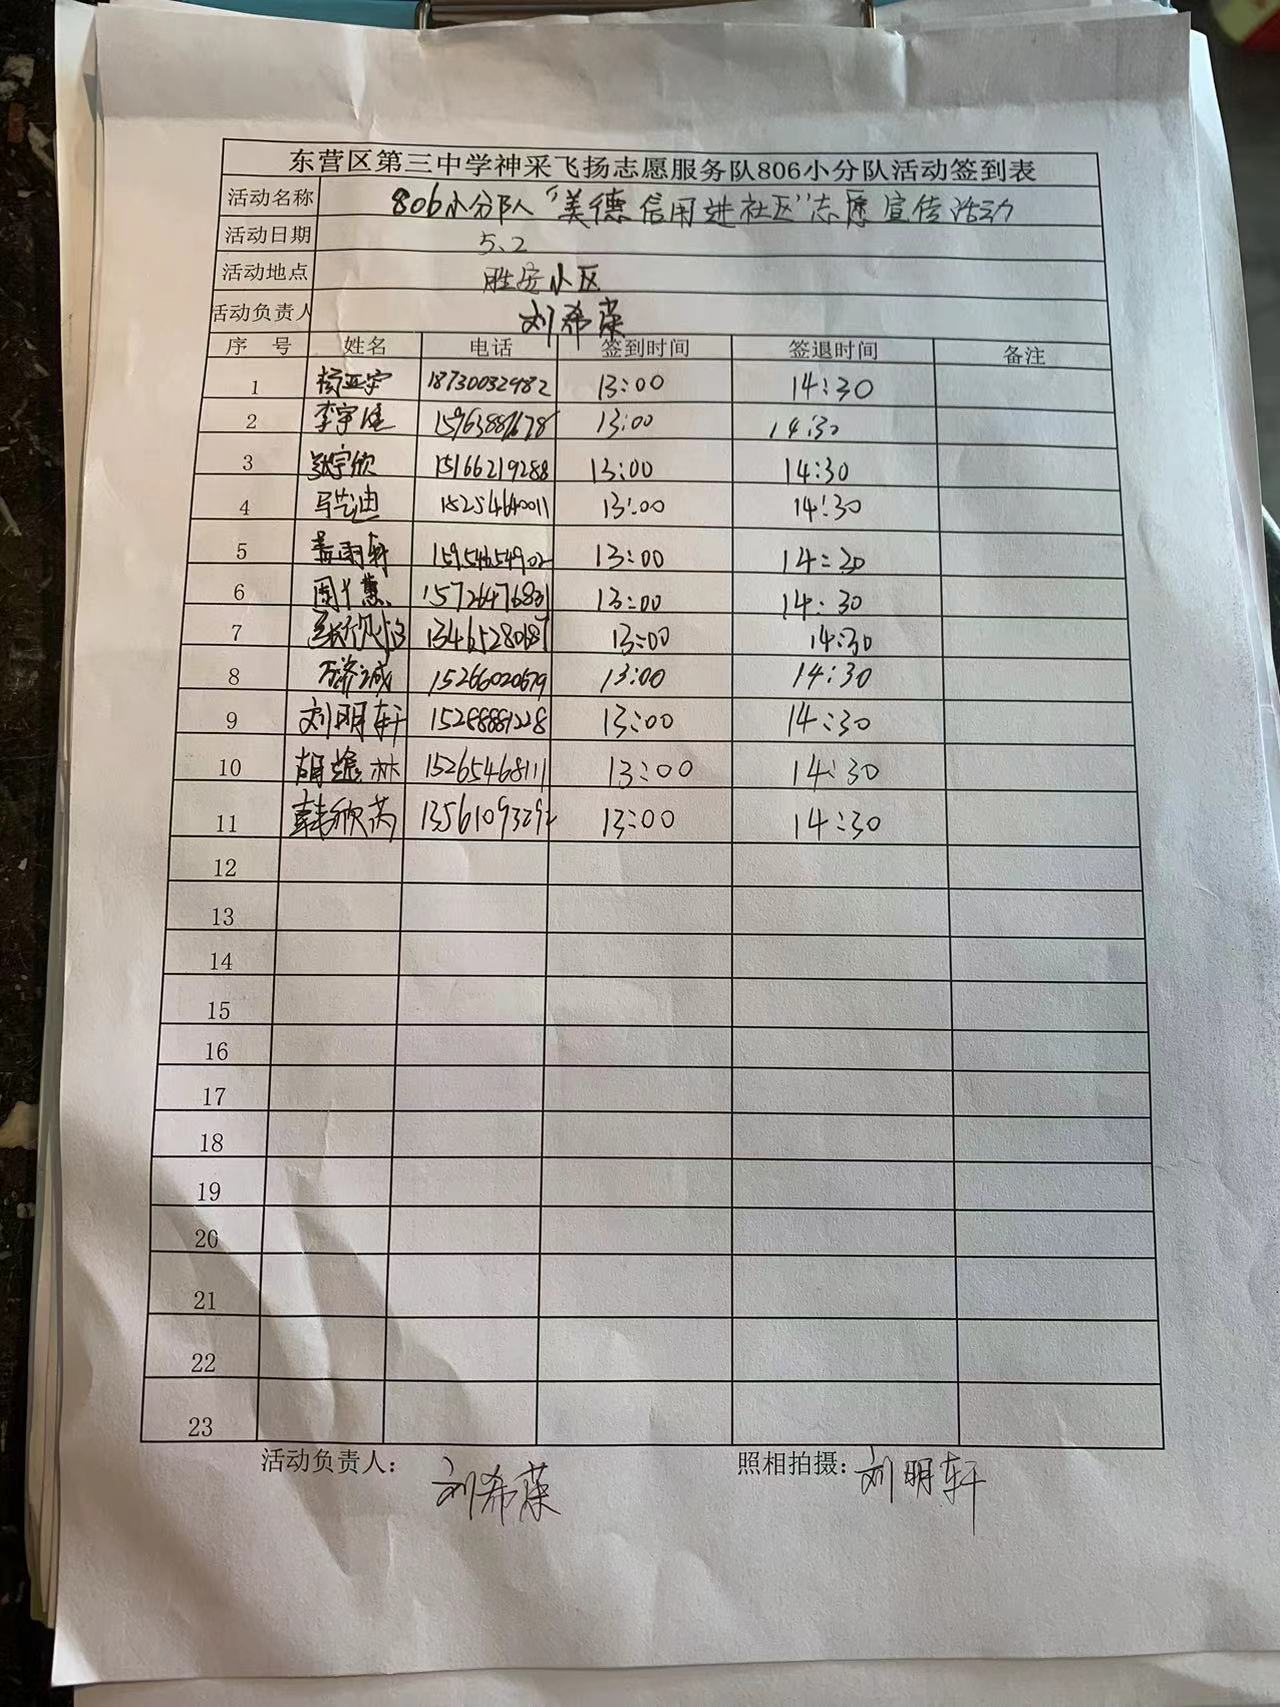 东营区第三中学神采飞扬志愿服务队806小分队活动签到表
活动名称 806小分队“美德信用进社区”志愿宣传活动
活动日期 5.2
活动地点 胜安小区
活动负责人 刘希荣
序号 姓名 电话 签到时间 签退时间 备注
1 杨亚宇 18730032982 13:00 14:30
2 李宇 13:00 14:30
3 张宇欣 15166219288 13:00 14:30
4 马艺迪 15254640011 13:00 14:30
5 雨轩 15954654902 13:00
6 周 慧 13:00 14:30
7 张欣 13:00 14:30
8 万济诚 15266020679 13:00 14:30
9 刘明轩 15288881228 13:00 14:30
10 胡 林 15265468111 13:00 14:30
11 韩欣芮 13561093292 13:00 14:30
12
13
14
15
16
17
18
19
20
21
22
23
活动负责人: 刘希荣 照相拍摄: 刘明轩